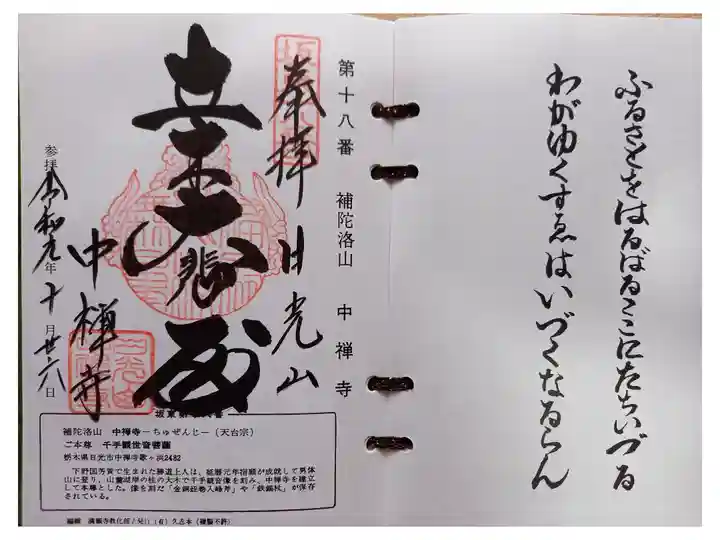 ふるさとをはるばるここにたちいづる
わがゆくすゑはいづくなるらん
第十八番 補陀洛山 中禅寺
奉拝 日光山
立木大悲殿
中禅寺
参拝 令和元年十月廿六日
補陀洛山 中禅寺－ちゅぜんじ－(天台宗)
ご本尊 千手観世音菩薩
栃木県日光市中禅寺歌ヶ浜2482
下野国芳賀で生まれた勝道上人は、延暦元年宿願が成就して男体
山に登り、山麓湖岸の桂の大木で千手観音像を刻み、中禅寺を建立
して本尊とした。像を刻んだ「金銅経巻入峰斧」や「鉄錫杖」が保存
されている。
編輯 満願寺教化部 (有)久志本(複製不許)